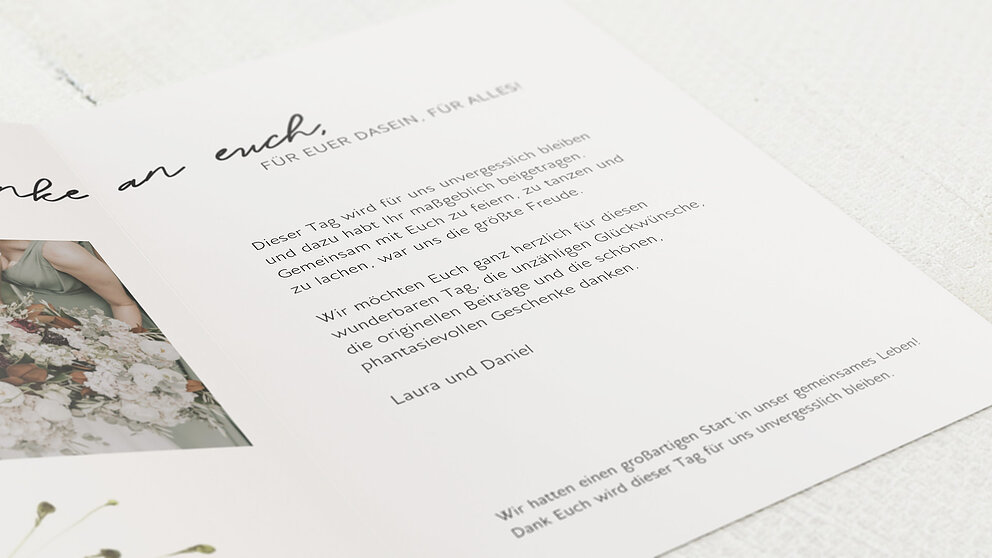 nke an euch,
FÜR EUER DASEIN, FÜR ALLES!
Dieser Tag wird für uns unvergesslich bleiben
und dazu habt Ihr maßgeblich beigetragen.
Gemeinsam mit Euch zu feiern, zu tanzen und
zu lachen, war uns die größte Freude.
Wir möchten Euch ganz herzlich für diesen
wunderbaren Tag, die unzähligen Glückwünsche,
die originellen Beiträge und die schönen,
phantasievollen Geschenke danken.
Laura und Daniel
Wir hatten einen großartigen Start in unser gemeinsames Leben!
Dank Euch wird dieser Tag für uns unvergesslich bleiben.